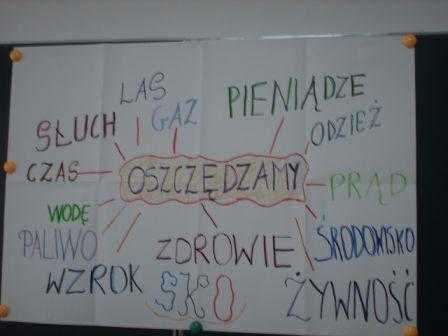 LAS
PIENIĄDZE
GAZ
ODZIEŻ
SŁUCH
CZAS
OSZCZĘDZAMY
PRĄD
WODĘ
ŚRODOWISKO
PALIWO
ZDROWIE
WZROK
SKO
ŻYWNOŚĆ